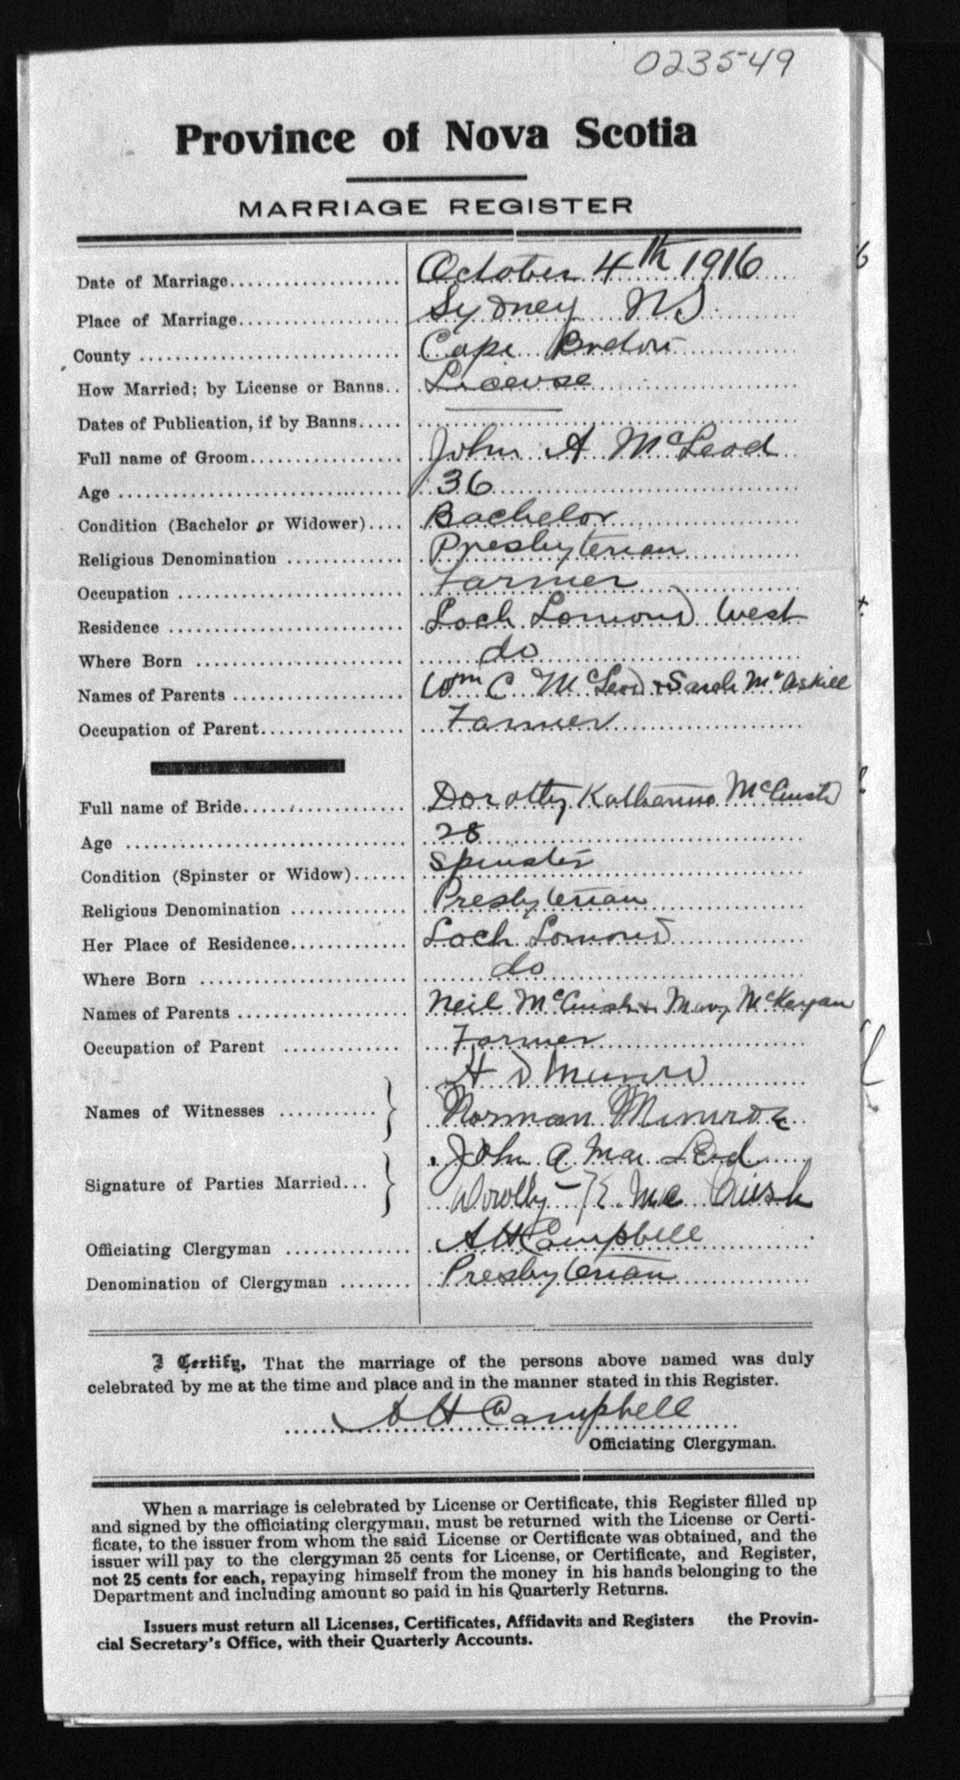 023549
Province of Nova Scotia
MARRIAGE REGISTER
Date of Marriage October 4th 1916
Place of Marriage Sydney NS
County Cape Breton
How Married; by License or Banns License
Dates of Publication, if by Banns
Full name of Groom John A McLeod
Age 36
Condition (Bachelor or Widower) Bachelor
Religious Denomination Presbyterian
Occupation Farmer
Residence Loch Lomond West
Where Born do
Names of Parents Wm C McLeod & Sarah McAskill
Occupation of Parent Farmer
Full name of Bride Dorothy Katherine McCuish
Age 28
Condition (Spinster or Widow) Spinster
Religious Denomination Presbyterian
Her Place of Residence Loch Lomond
Where Born do
Names of Parents Neil McCuish & Mary McKeyan
Occupation of Parent Farmer
H D Munro
Names of Witnesses Norman Munroe
John A Mac Leod
Signature of Parties Married Dorothy K Mc Cuish
Officiating Clergyman A H Campbell
Denomination of Clergyman Presbyterian
I Certify, That the marriage of the persons above named was duly
celebrated by me at the time and place and in the manner stated in this Register.
A H Campbell
Officiating Clergyman.
When a marriage is celebrated by License or Certificate, this Register filled up
and signed by the officiating clergyman, must be returned with the License or Certi-
ficate, to the issuer from whom the said License or Certificate was obtained, and the
issuer will pay to the clergyman 25 cents for License, or Certificate, and Register,
not 25 cents for each, repaying himself from the money in his hands belonging to the
Department and including amount so paid in his Quarterly Returns.
Issuers must return all Licenses, Certificates, Affidavits and Registers the Provin-
cial Secretary's Office, with their Quarterly Accounts.